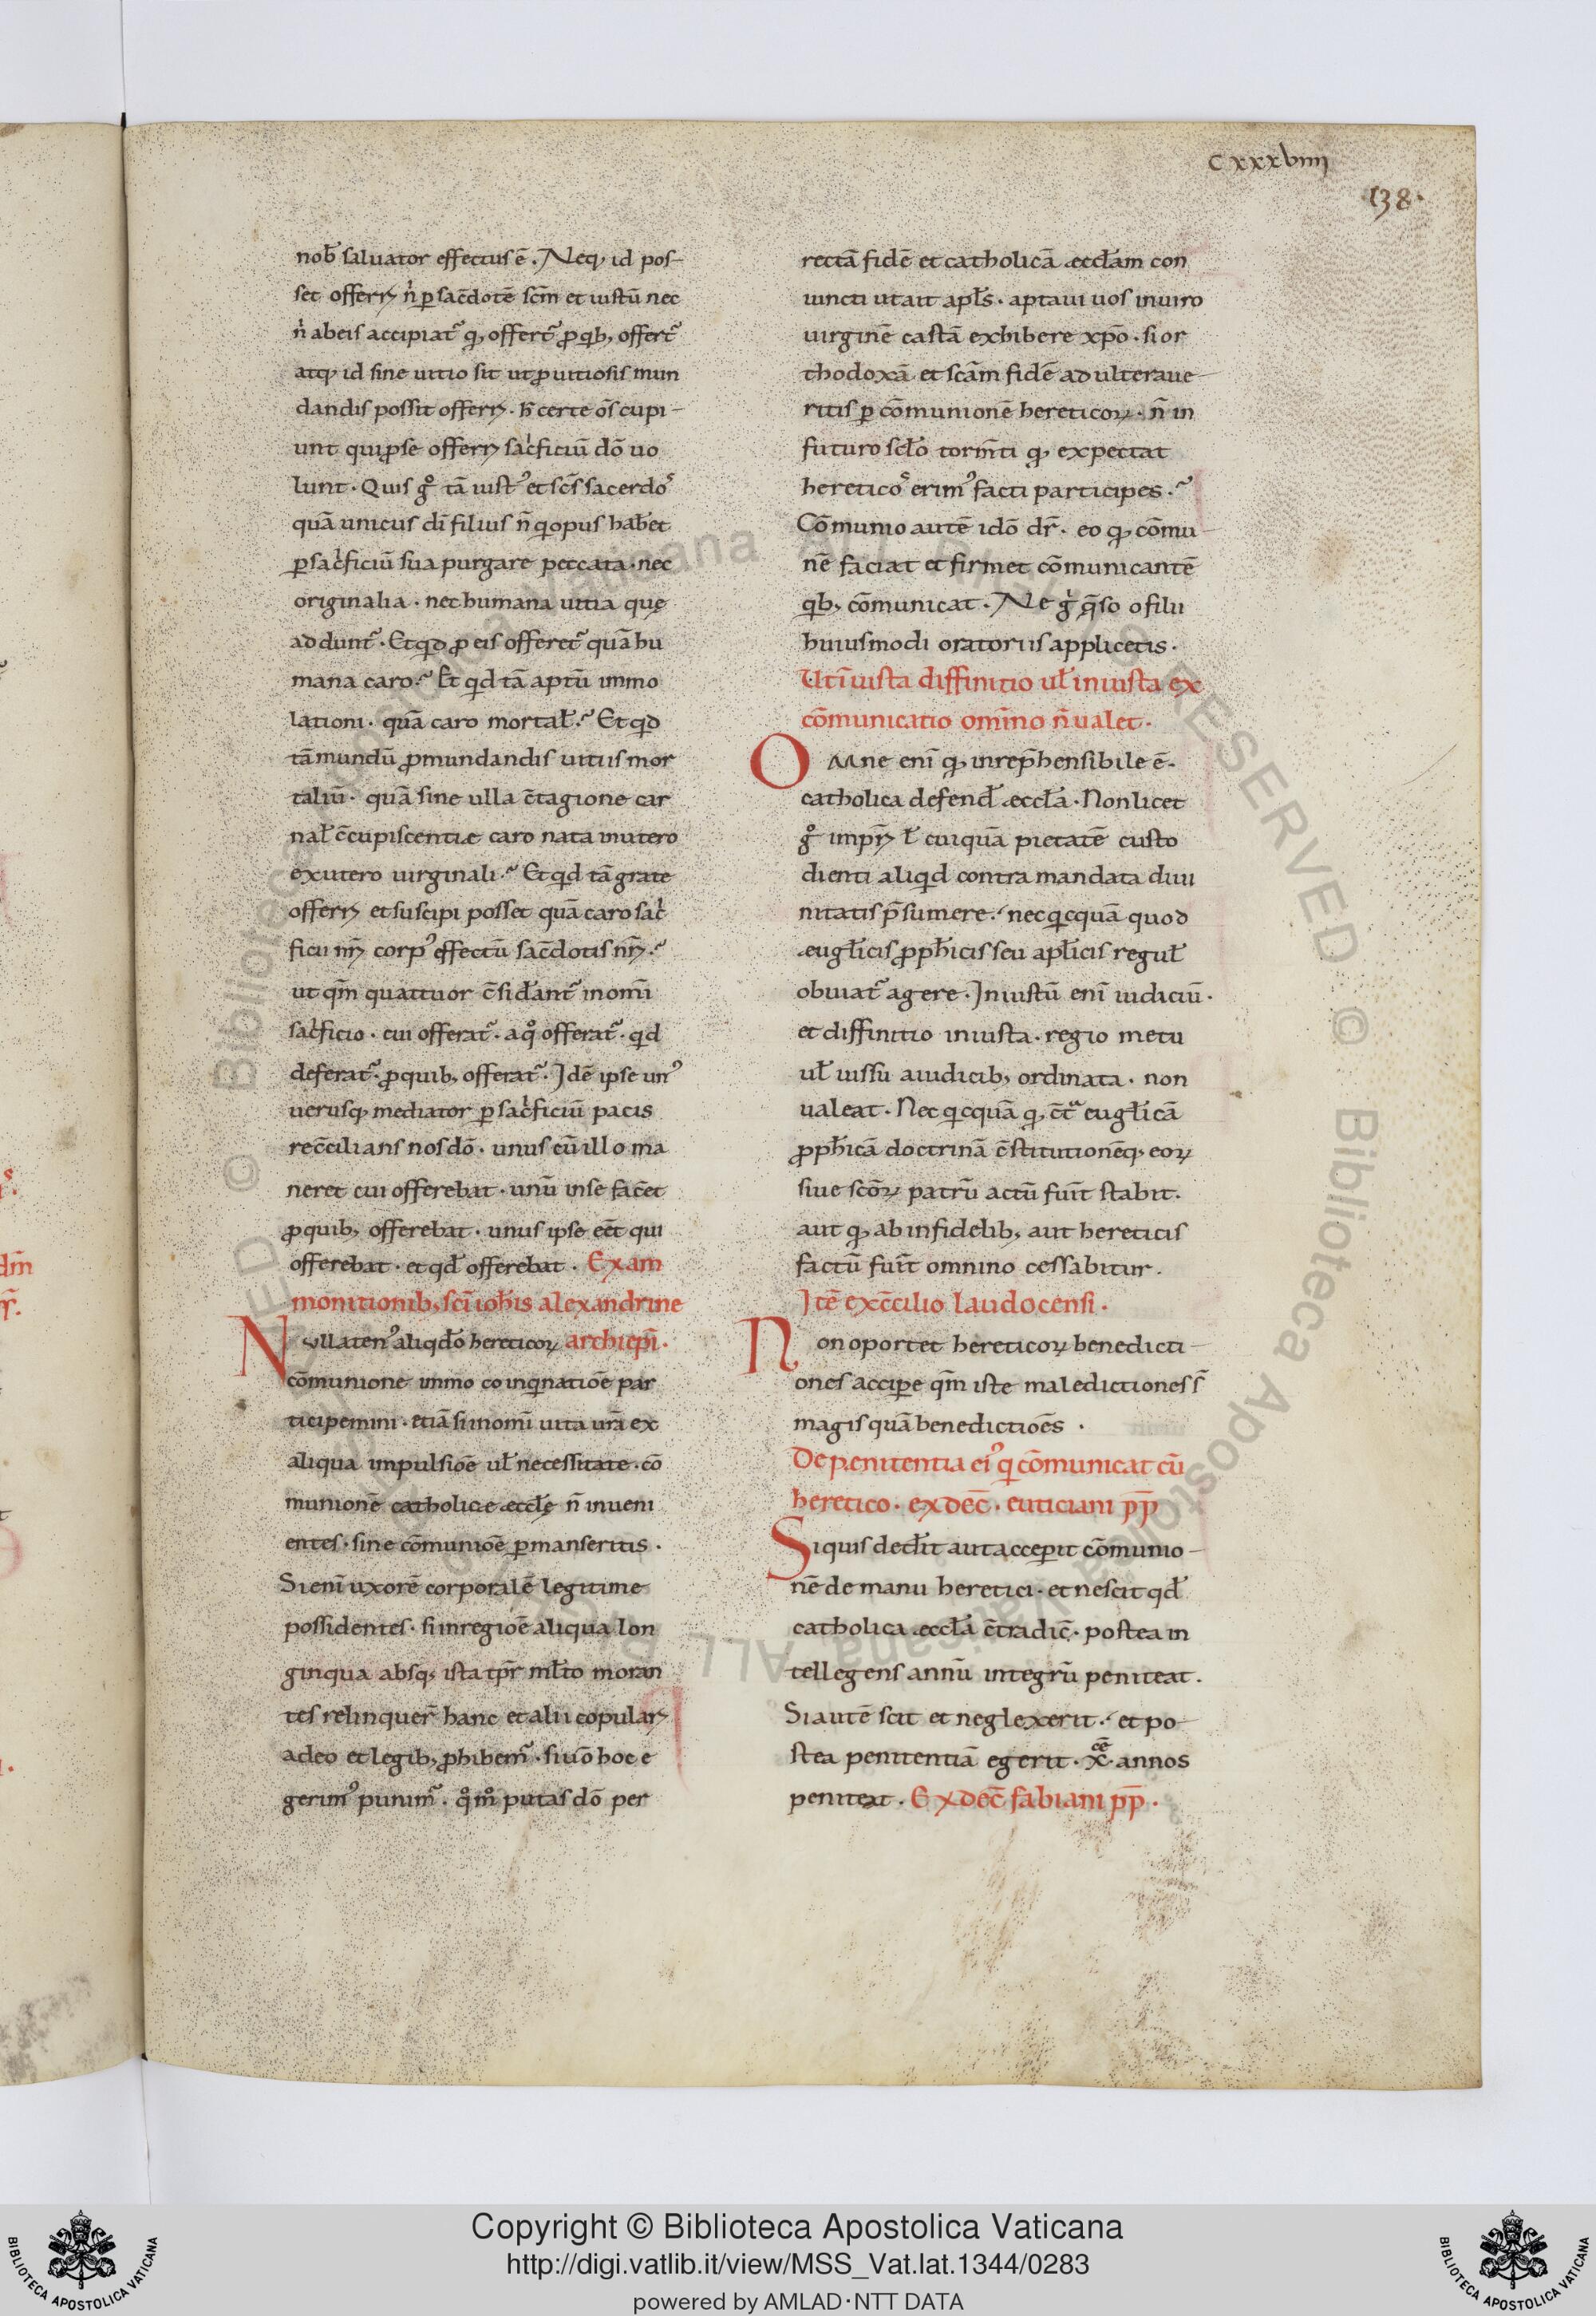 cxxxviiii
138.
nob̄ saluator effectus ē. Neq; id pos-
set offerr̄ n̄ ꝑ sac̄dotē sc̄m et iustū nec
n̄ abeis accipiat᷑ qđ offert᷑ ꝓ qib; offert᷑
atq; id sine uitio sit ut ꝓ uitiosis mun
dandis possit offerr̄. h̄ certe om̄s cupi-
unt qui ꝓse offerr̄ sac̍ficiū dō uo
lunt. Quis gͦ tā iust᷒ et sc̄s sacerdo᷒
quā unicus dī filius n̄ qͥ opus hab̄et
ꝑ sac̍ficiū sua purgare peccata. nec
originalia. nec humana uitia quę
addunt᷑. Et qͥd ꝓ eis offeret᷑ quā hu
mana caro.? Et qͥd tā aptū immo
lationi. quā caro mortal̄.? Et qͥd
tā mundū ꝓ mundandis uitiis mor
taliū. quā sine ulla c̄tagione car
nal̄ c̄cupiscentiæ caro nata inutero
exutero uirginali.? Et qͥd tā grate
offerr̄ et suscipi posset quā caro sac̍
ficii nr̄i corp᷒ effectū sac̄dotis nr̄i.?
ut qm̄ quattuor c̄sid̄ant᷑ inom̄i
sac̍ficio. cui offerat᷑. aqͦ offerat᷑. qͥd
deferat᷑. ꝓ quib; offerat᷑. Idē ipse un᷒
uerusq; mediator ꝑ sac̍ficiū pacis
rec̄cilians nos dō. unus cū illo ma
neret cui offerebat. unū inse fac̄et
ꝓ quib; offerebat. unus ipse eēt qui
offerebat. et qđ offerebat. Ex am
monitionib; sc̄i ioh̄is alexandrine
Nullaten᷒ aliqdō hereticoꝝ archiepī.
cōmunione immo coinqͥnatiōe par
ticipemini. etiā si inom̄i uita ur̄a ex
aliqua impulsiōe ul̄ necessitate. cō
munionē catholicæ æccłę n̄ inueni
entes. sine cōmuniōe ꝑmanseritis.
Si enī uxorē corporalē legitime
possidentes. si inregiōe aliqua lon
ginqua absq; ista tp̄r ml̄to moran
tes relinquer̄ hanc et alii copular̄
adeo et legib; ꝓhibem᷑. si uō hoc e
gerim᷒ punim᷑. qͦmͦ putas dō per
rectā fidē et catholicā æccłam con
iuncti ut ait apl̄s. aptaui uos inuiro
uirginē castā exhibere xp̄o. si or
thodoxā et sc̄am fidē adulteraue-
ritis ꝑ cōmunionē hereticoꝝ. n̄ in
futuro sc̄lo torm̄ti qđ expectat
hereticoˢ erim᷒ facti participes.?
Cōmunio autē idō dr̄. eo qđ cōmu-
nē faciat et firmet cōmunicantē
qib; cōmunicat. Ne g̍ q̄so o filii
huiusmodi oratoriis applicetis.
Ut iniusta diffinitio ul̄ iniusta ex
cōmunicatio omīno n̄ ualet.
Omne enī qđ inrep̄hensibile ē.
catholica defend̄ æccła. Non licet
gͦ impr̄i l̄ cuiquā pietatē custo
dienti aliqͥd contra mandata diui
nitatis p̄sumere. nec qͥcquā quod
æuglicis ꝓph̄icis seu apl̄icis regul̄
obuiat᷑ agere. Iniustū enī iudiciū.
et diffinitio iniusta. regio metu
ul̄ iussu a iudicib; ordinata. non
ualeat. Nec qͥcquā qđ c̄tͣ euglicā
ꝓph̄icā doctrinā c̄stitutionēq; eoꝝ
siue sc̄oꝝ patrū actū fuīt stabit.
aut qđ ab infidelib; aut hereticis
factū fuīt omnino cessabitur.
Itē ex c̄cilio Laudocensi.
Non oportet hereticoꝝ benedicti-
ones acciꝑe qm̄ iste maledictiones s̄
magis quā benedictiōes.
De penitentia ei᷒ qͥ cōmunicat cū
heretico. ex dec̄. euticiani pp̄
Siquis ded̄it aut acceꝑit cōmunio-
nē de manu heretici. et nescit qđ
catholica æccła c̄tradic̄. postea in
tellegens annū integrū peniteat.
Si autē scit et neglexerit. et po-
stea penitentiā egerit. x̄ cē annos
peniteat. Ex dec̄ fabiani pp̄.
© Biblioteca Apostolica Vaticana ALL RIGHTS RESERVED © Biblioteca Apostolica Vaticana ALL RIGHTS RESERVED
Copyright © Biblioteca Apostolica Vaticana
http://digi.vatlib.it/view/MSS_Vat.lat.1344/0283
powered by AMLAD·NTT DATA
BIBLIOTECA APOSTOLICA VATICANA
BIBLIOTECA APOSTOLICA VATICANA